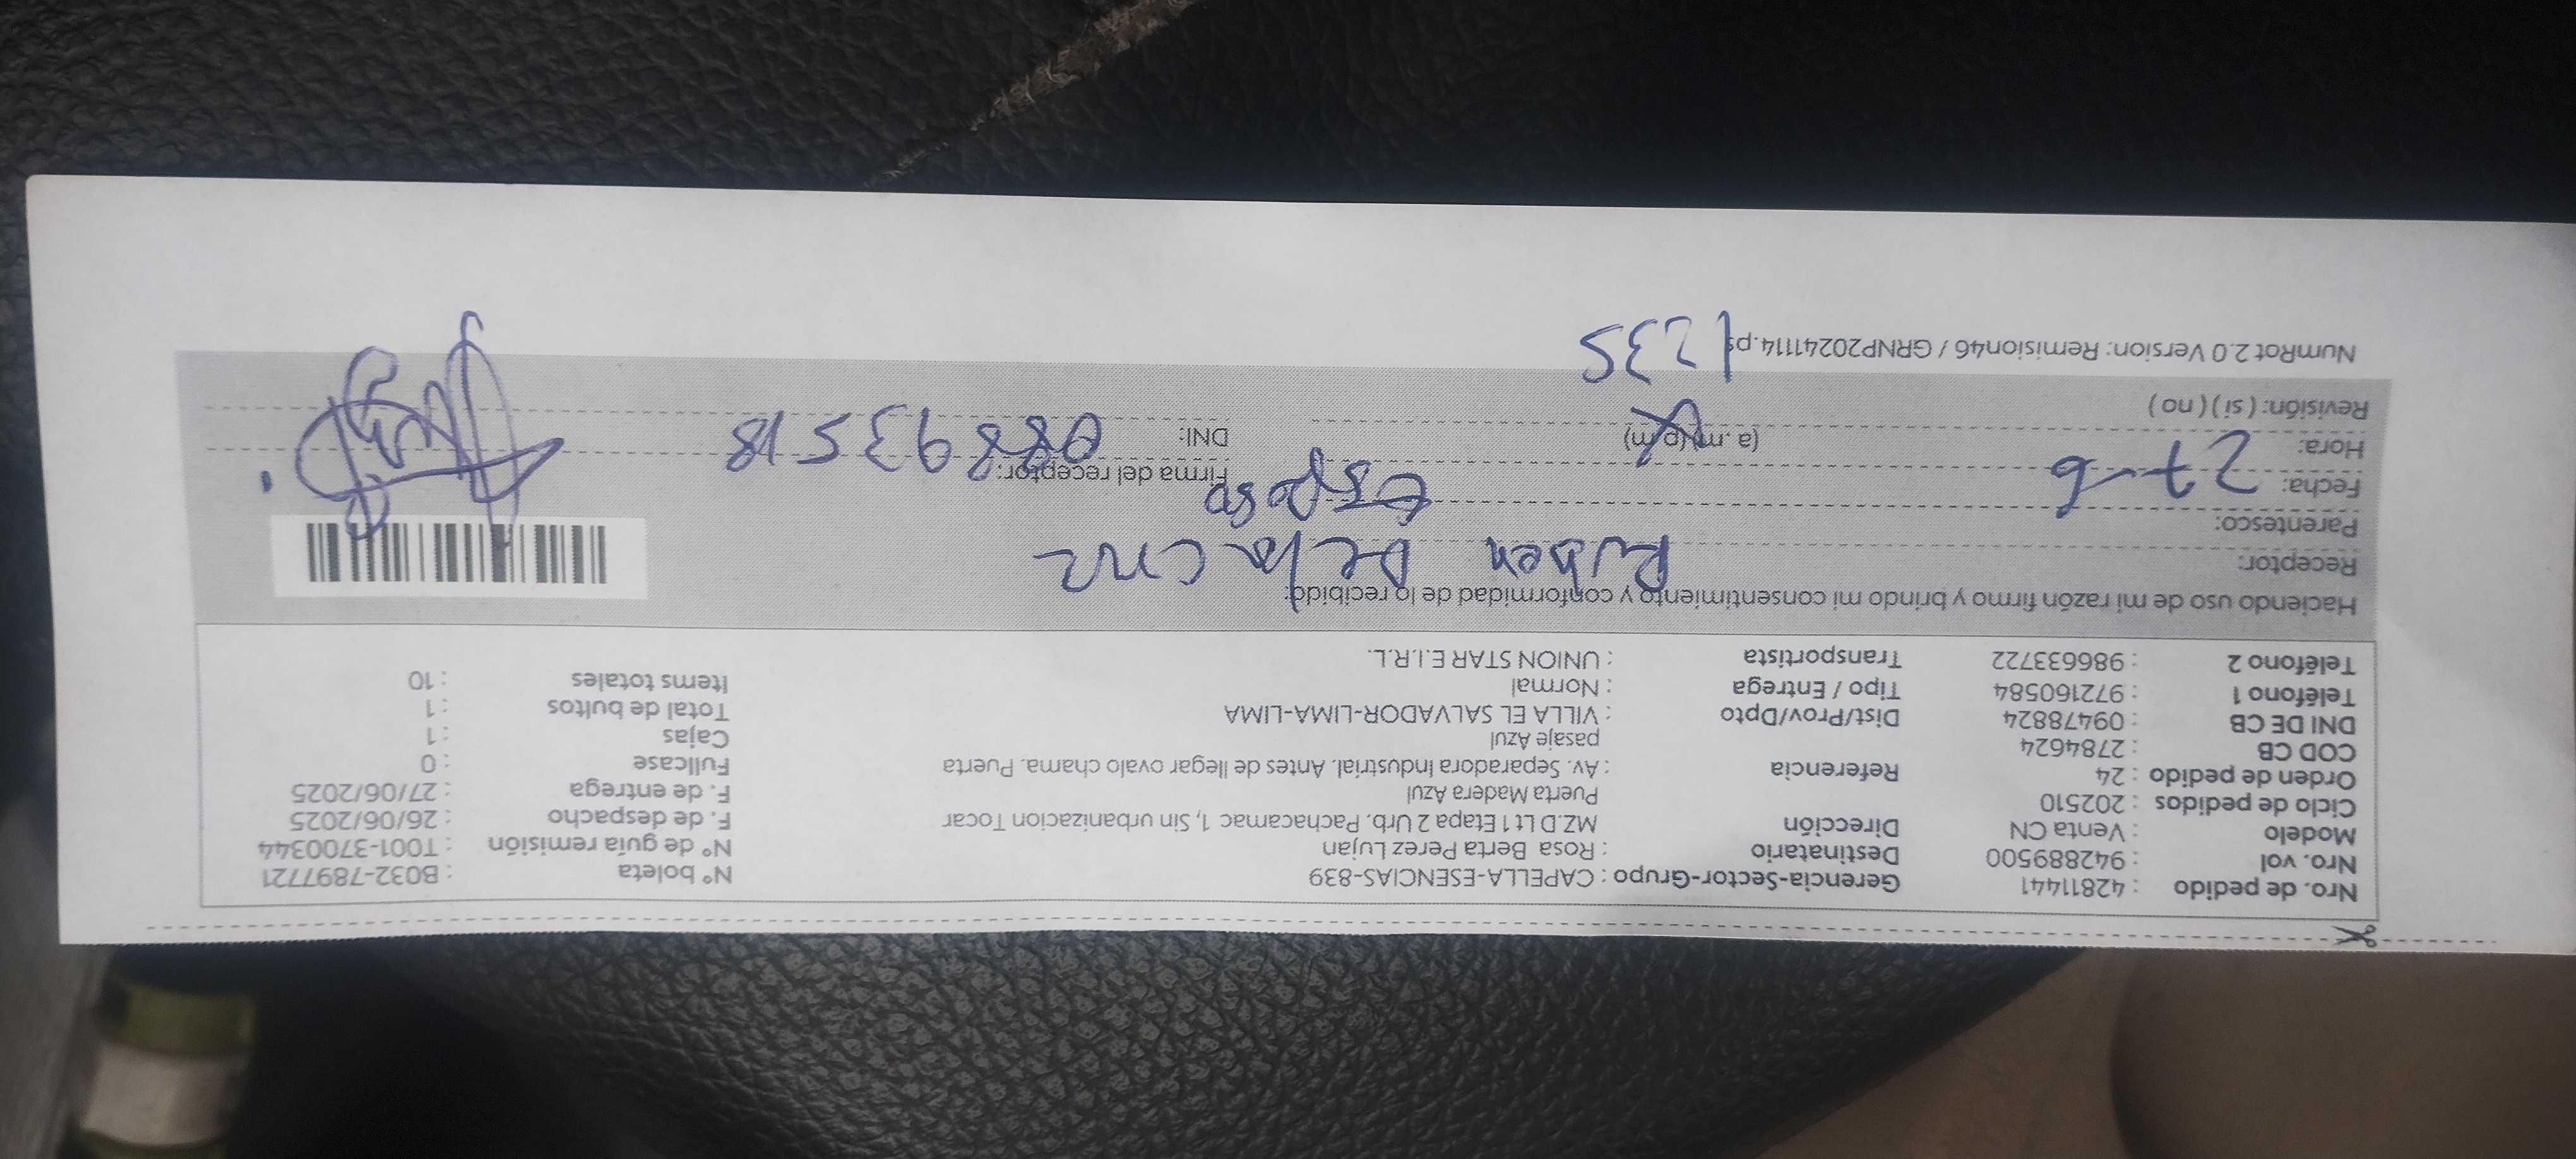 Nro. de pedido : 42811441 Gerencia-Sector-Grupo : CAPELLA-ESENCIAS-839 N° boleta : B032-7897721
Nro. vol : 942889500 Destinatario : Rosa Berta Perez Lujan N° de guía remisión : T001-3700344
Modelo : Venta CN Dirección MZ.D Lt 1 Etapa 2 Urb. Pachacamac 1, Sin urbanizacion Tocar F. de despacho : 26/06/2025
Ciclo de pedidos : 202510 Puerta Madera Azul F. de entrega : 27/06/2025
Orden de pedido : 24 Referencia : Av. Separadora Industrial. Antes de llegar ovalo chama. Puerta Fullcase : 0
COD CB : 2784624 pasaje Azul Cajas : 1
DNI DE CB : 09478824 Dist/Prov/Dpto : VILLA EL SALVADOR-LIMA-LIMA Total de bultos : 1
Teléfono 1 : 972160584 Tipo / Entrega : Normal Items totales : 10
Teléfono 2 : 986633722 Transportista : UNION STAR E.I.R.L.
Haciendo uso de mi razón firmo y brindo mi consentimiento y conformidad de lo recibido:
Receptor: Ruben De la cruz
Parentesco: Esposo
Fecha: 27-6 Firma del receptor:
Hora: (a.m) (p.m) DNI: 08893518
Revisión: ( si ) ( no )
NumRot 2.0 Version: Remision46 / GRNP20241114.ps 1235